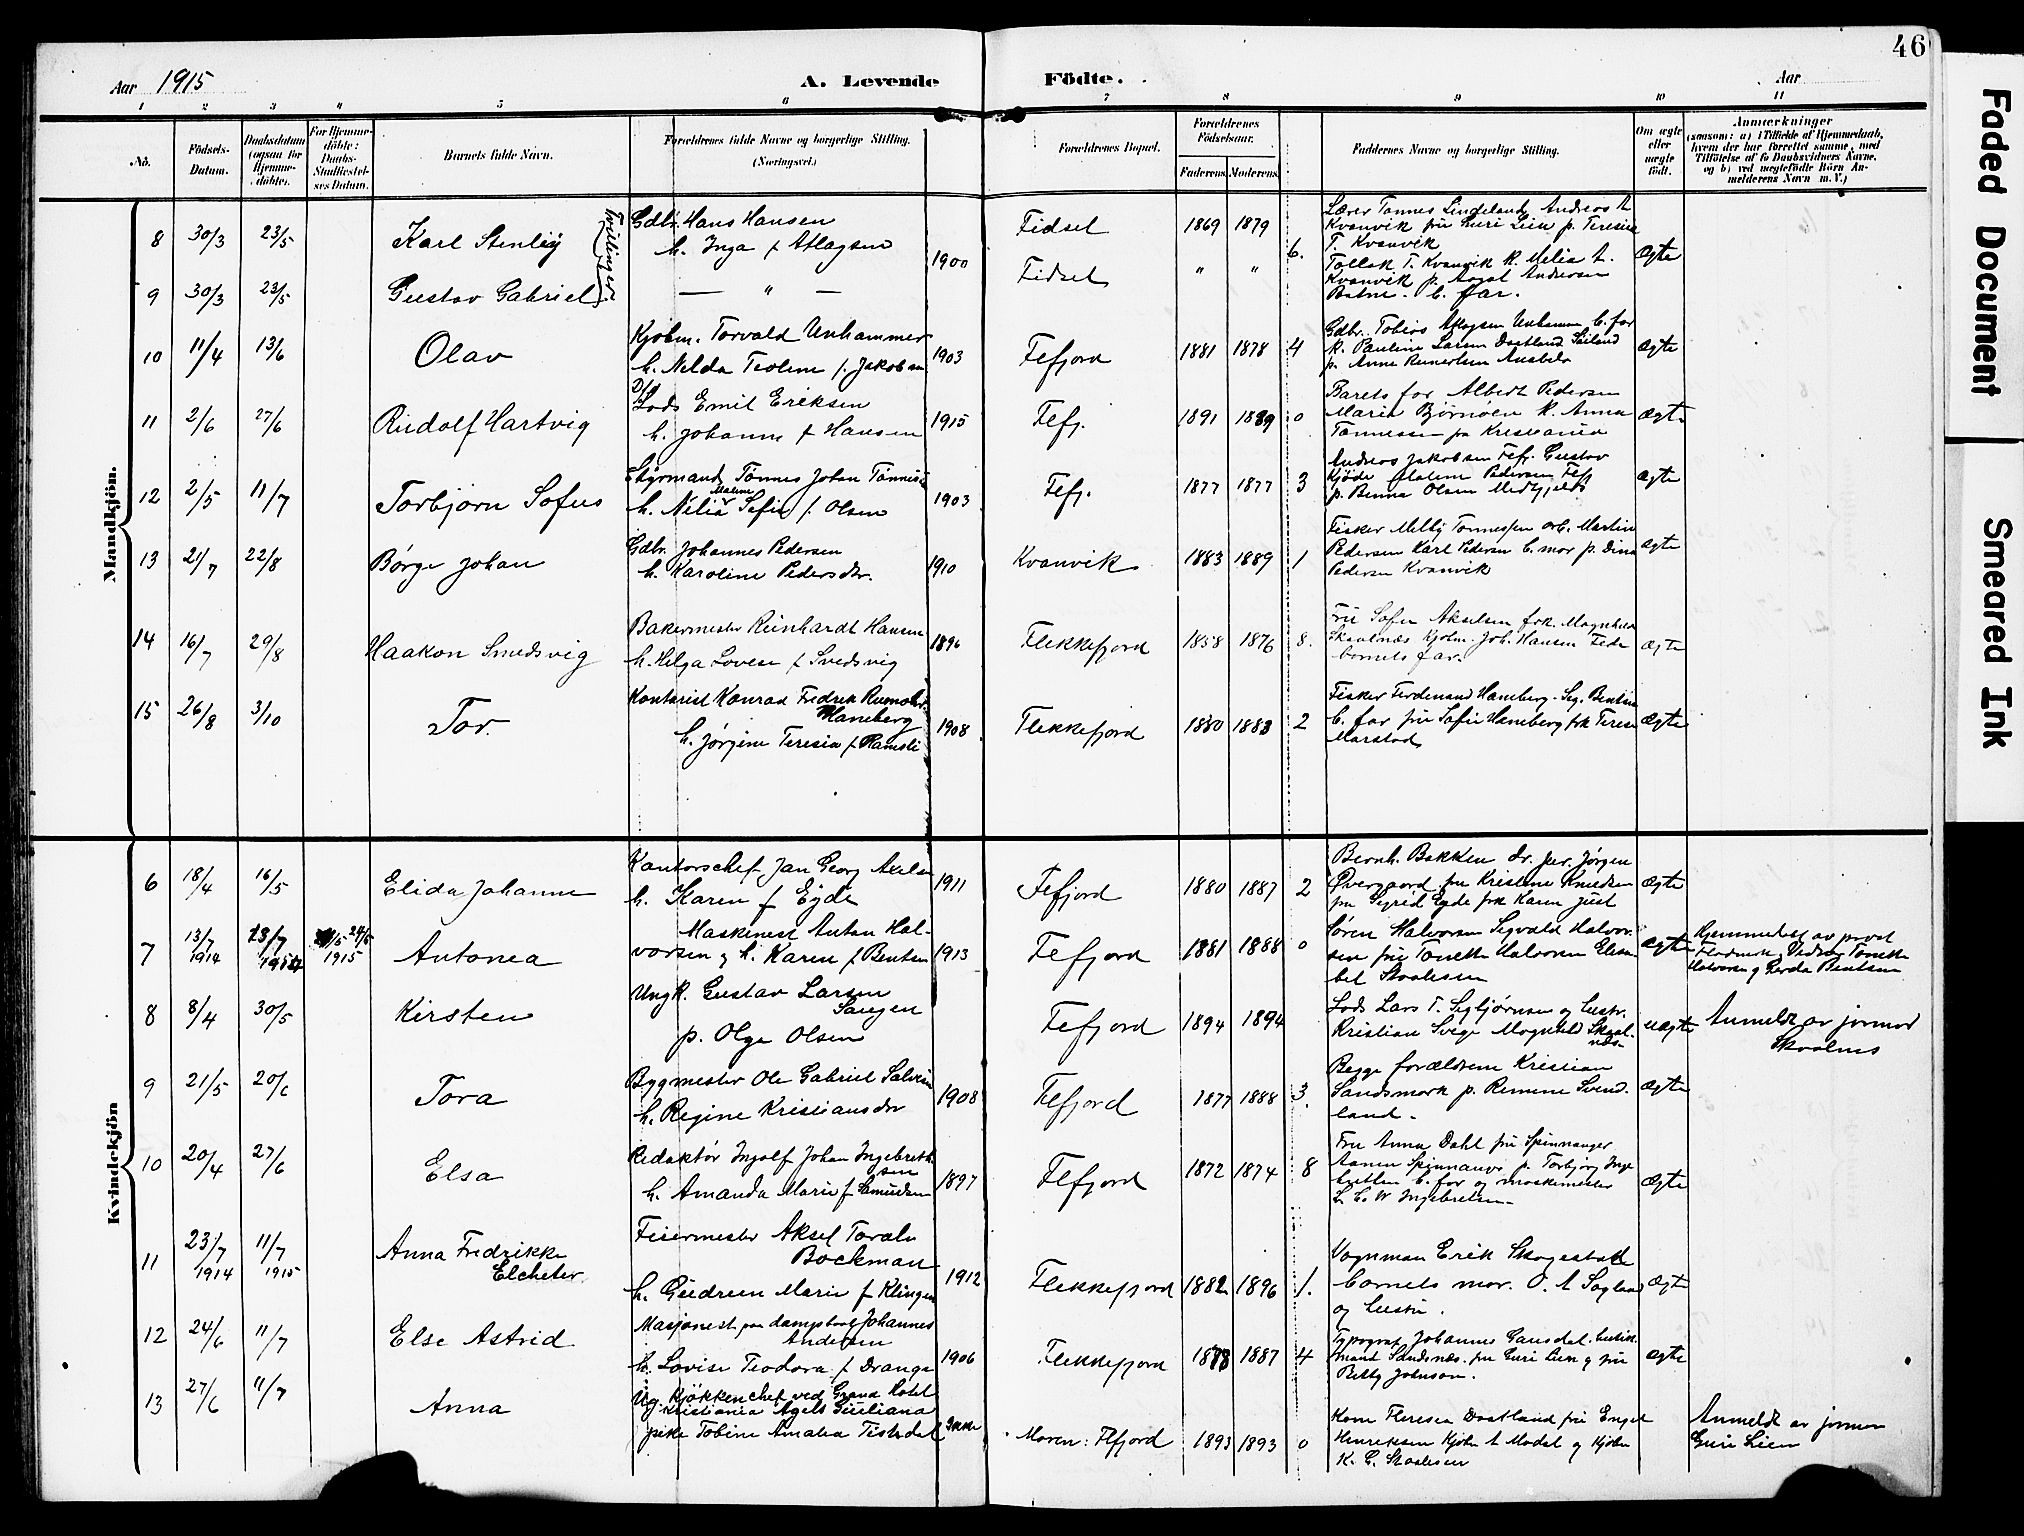 46
Aar 1915
A. Levende Födte.
Aar
1 2 3 4 5 6 7 8 9 10 11
No.
Födsels-Datum.
Daabsdatum (ogsaa for Hjemme-döbte).
For Hjemme-döbte: Daabs-Stadfæstel-ses Datum.
Barnets fulde Navn.
Forældrenes fulde Navne og borgerlige Stilling. (Næringsvei.)
Forældrenes Bopæl.
Forældrenes Födselsaar.
Faderens. Moderens.
Faddernes Navne og borgerlige Stilling.
Om ægte eller uægte födt.
Anmærkninger
(saasom: a) i Tilfælde af Hjemmedaab, hvem der har forrettet samme, med Tilföielse af to Daabsvidners Navne, og b) ved uægtefödte Börn An-melderens Navn m. V.)
Mandkjön.
8 30/3 23/5 Karl Stenley Gdbr. Hans Hansen
h. Inga f Atlagsen 1900 Fidsel 1869 1879 6. Lærer Tønnes Lindeland Andreas A.
Kvanvik fru Guri Lien p. Teresie
T. Kvanvik ægte
Tvillinger
9 30/3 23/5 Gustav Gabriel — " — Fidsel " " Tollak T. Kvanvik k. Milia A.
Kvanvik p. Andersen
b. far.
10 11/4 13/6 Olav Kjøbm. Torvald Unhammer
h. Nelda Teoline f. Jakobsen 1903 Fefjord 1881 1878 4 Gdbr. Tobias Unhammer b. far
k. Pauline Larsen
p. Anne ægte
11 2/6 27/6 Rudolf Hartvig Lods Emil Eriksen
h. Johanne f Hansen 1915 Fefj. 1891 1889 0 Barets far Albert Pedersen
Marie Bjørnøen k. Anna
Tønnessen fra Kristiania ægte
12 2/5 11/7 Torbjørn Sofus Styrmand Tønnes Johan Tønnes
h. Nilia Malene Sofie f. Olsen 1903 Fefj. 1877 1877 3 Andreas Jakobsen Fefj. Gustav
Kjøde Malene Pedersen Fefj
p. Benna Olsen ægte
13 21/7 22/8 Børge Johan Gdbr. Johannes Pedersen
h. Karoline Pedersdtr. 1910 Kvanvik 1883 1889 1 Fisker Tønnessen arb. Martin
Pedersen Karl Pedersen b. mor p. Dina
Pedersen Kvanvik ægte
14 16/7 29/8 Haakon Smedsvig Bakermester Reinhardt Hansen
h. Helga Lovise f Svedsvig 1896 Flekkefjord 1858 1876 8. Fru Sofie Akselsen frk. Magnhild
Skaalnæs Kjøbm. Joh. Hansen Feda
barnets far. ægte
15 26/8 3/10 Tor. Kontorist Konrad Fredrik
Haneberg
h. Jørgine Teresia f Ramsli 1908 Flekkefjord 1880 1883 2 Fisker Ferdinand Haneberg. Sig. Bentsen
b. far fru Sofie Haneberg frk Terese
Marstad ægte
Kvindekjön
6 18/4 16/5 Elida Johanne Kontorschef Jan Georg Axelsen
h. Karen f Eyde 1911 Fefjord 1880 1887 2 Bernh. Bakken dr. jur. Jørgen
Øvergaard fru Kristine Knudsen
fru Sigrid Eyde frk Karen Just ægte
7 13/7 1914 23/7 1914 24/5 1915 Antonea Maskinist Anton Hal-
vorsen g h. Karen f Bentsen 1913 Fefjord 1881 1888 0 Søren Halvorsen Sigvald Halvor-
sen fru Tonette Halvorsen Elisa-
bet Staalesen ægte Hjemmedøbt av provst
Vidner: Tonette
Halvorsen g Gerda Bentsen
8 8/4 30/5 Kirsten Ungk. Gustav Larsen
Haugen
p. Olga Olsen Fefjord 1894 1894 Lods Lars T. Sigbjørnsen og hustr.
Kristian Svege Magnhild Skaal-
næs uægte Anmeldt av jormor
Skaalnes
9 21/5 20/6 Tora Bygmester Ole Gabriel Salvesen
h. Regine Kristiansdtr 1908 Flefjord 1877 1888 3. Begge forældrene Kristian
Sandsmark p. Remine Svend-
land. ægte
10 20/4 27/6 Elsa Redaktør Ingolf Johan Ingebreth-
sen
h. Amanda Marie f Samuelsen 1897 Flefjord 1872 1874 8 Fru Anna Dahl fru Spinnanger
Aanen Spinnanger p. Torbjørg Inge-
bretsen b. far og maskinmester
L. C. W Ingebretsen ægte
11 23/7 1914 11/7 1915 Anna Fredrikke
Feiermester Aksel Toralv
Bockman
h. Gudrun Marie f Klingen 1912 Flekkefjord 1882 1896 1. Vognman Erik Skogestad
barnets mor. O. A
og hustru. ægte
12 24/6 11/7 Else Astrid Masjinist paa dampbaat Johannes
Andersen
h. Lovise Teodora f Drange 1906 Flekkefjord 1878 1887 4 Typograf Johannes Gausdal. hustr.
Sandsnæs. fru Guri Lien g fru
Betty Johnson. ægte
13 27/6 11/7 Anna Ug. Kjøkkenchef ved Grand Hotel
Kristiania
pike Tobine Amalia Tistedal Ikke Moren: Flefjord 1893 1893 0 Kone Teresea Daatland fru Engel
Henriksen Kjøbm A Modal g Kjøbm
K. G. Staalesen Anmeldt av jormor
Guri Lien
Faded Document
Smeared Ink